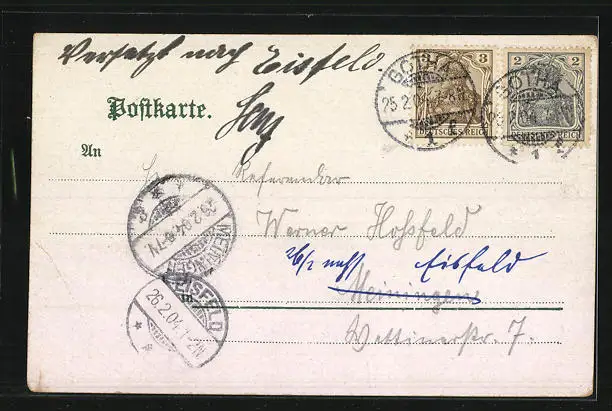 Versetzt nach Eisfeld.
3
2
DEUTSCHES REICH
DEUTSCHES REICH
GOTHA
25.2.04
* 1 c
GOTHA
* 1
Postkarte.
An
Referendar
Werner Hoßfeld
nach Eisfeld
Meiningen
Wettinerstr. 7.
MEININGEN
.2.04. 6-7N
EISFELD
26.2.04. 1-2N